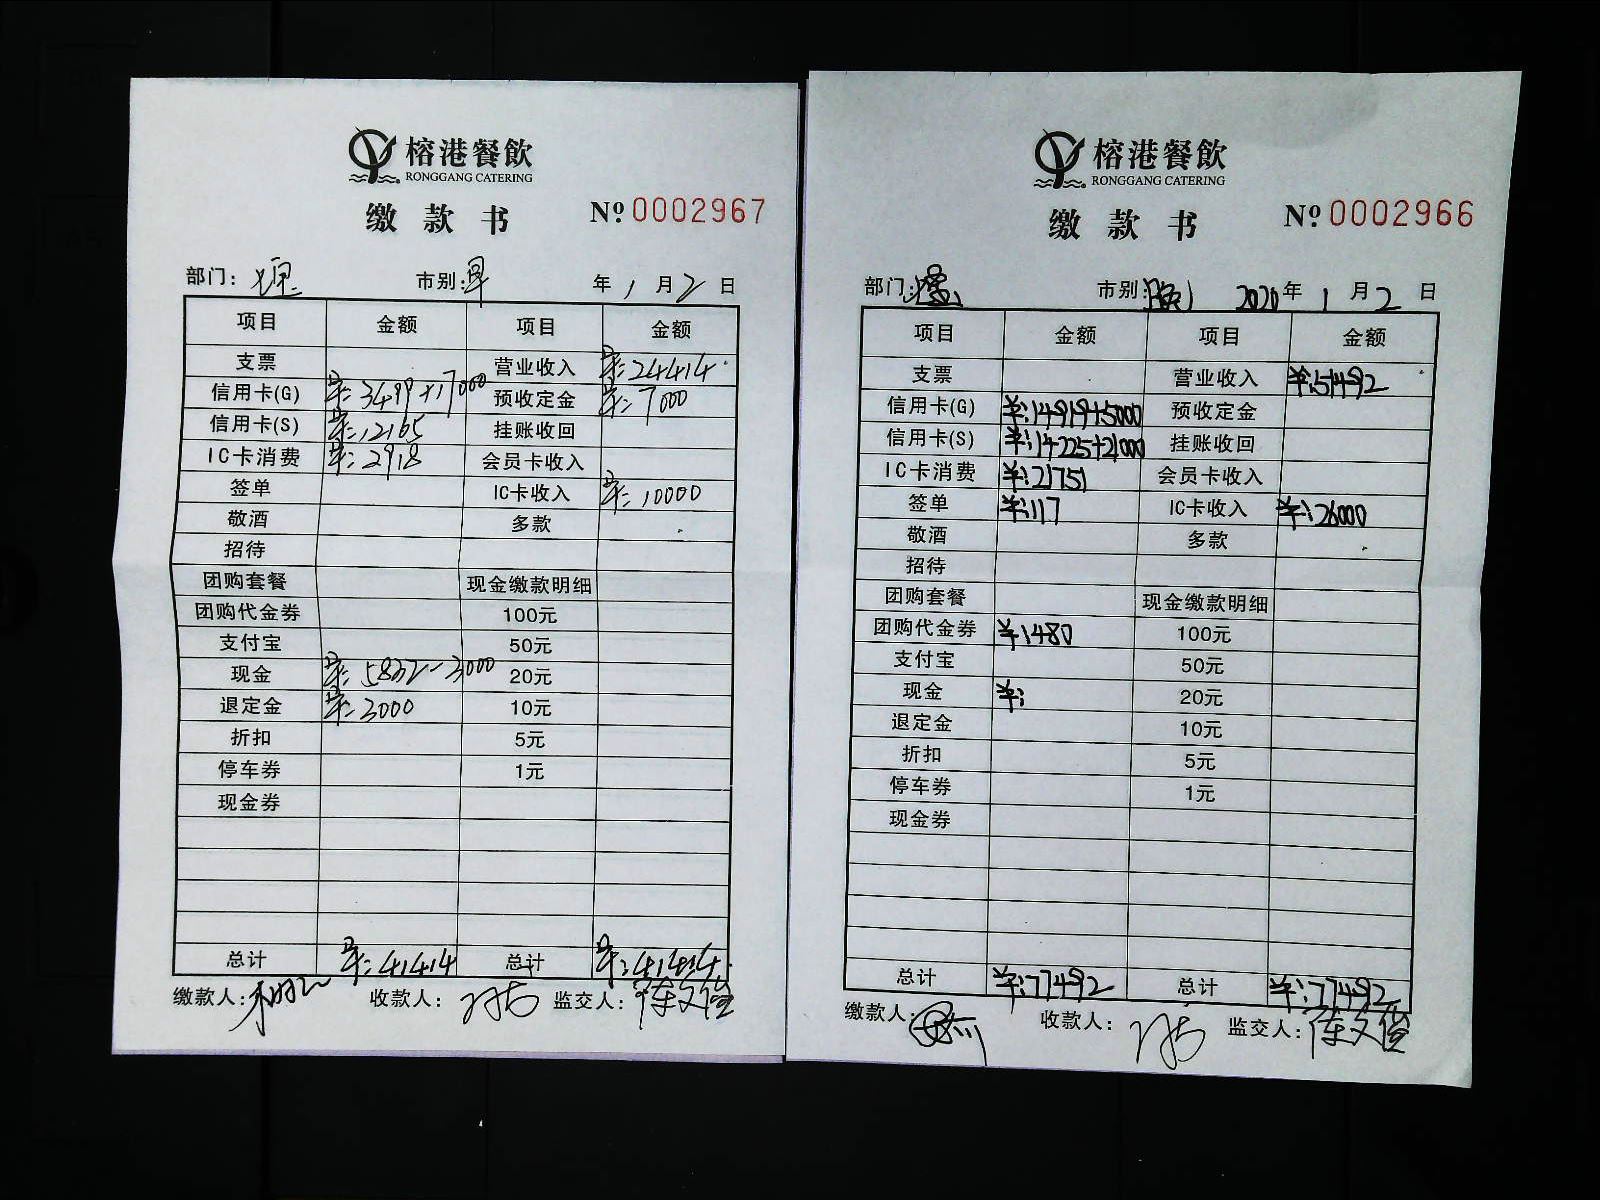 榕港餐飲
RONGGANG CATERING
缴款书
№ 0002967
部门： 市别：早 年 1 月 2 日
项目 金额 项目 金额
支票 营业收入 ￥：24414
信用卡(G) ￥：3499+17000 预收定金 ￥：7000
信用卡(S) ￥：12165 挂账收回
IC卡消费 ￥：2918 会员卡收入
签单 IC卡收入 ￥：10000
敬酒 多款
招待
团购套餐 现金缴款明细
团购代金券 100元
支付宝 50元
现金 ￥：5832-3000 20元
退定金 ￥：3000 10元
折扣 5元
停车券 1元
现金券
总计 ￥：41414 总计 ￥：41414
缴款人： 收款人： 监交人：
榕港餐飲
RONGGANG CATERING
缴款书
№ 0002966
部门： 市别：晚 2020 年 1 月 2 日
项目 金额 项目 金额
支票 营业收入 ￥：51492
信用卡(G) ￥：14919+5000 预收定金
信用卡(S) ￥：14225+21000 挂账收回
IC卡消费 ￥：21751 会员卡收入
签单 ￥：117 IC卡收入 ￥：26000
敬酒 多款
招待
团购套餐 现金缴款明细
团购代金券 ￥1480 100元
支付宝 50元
现金 ￥： 20元
退定金 10元
折扣 5元
停车券 1元
现金券
总计 ￥：77492 总计 ￥：77492
缴款人： 收款人： 监交人：